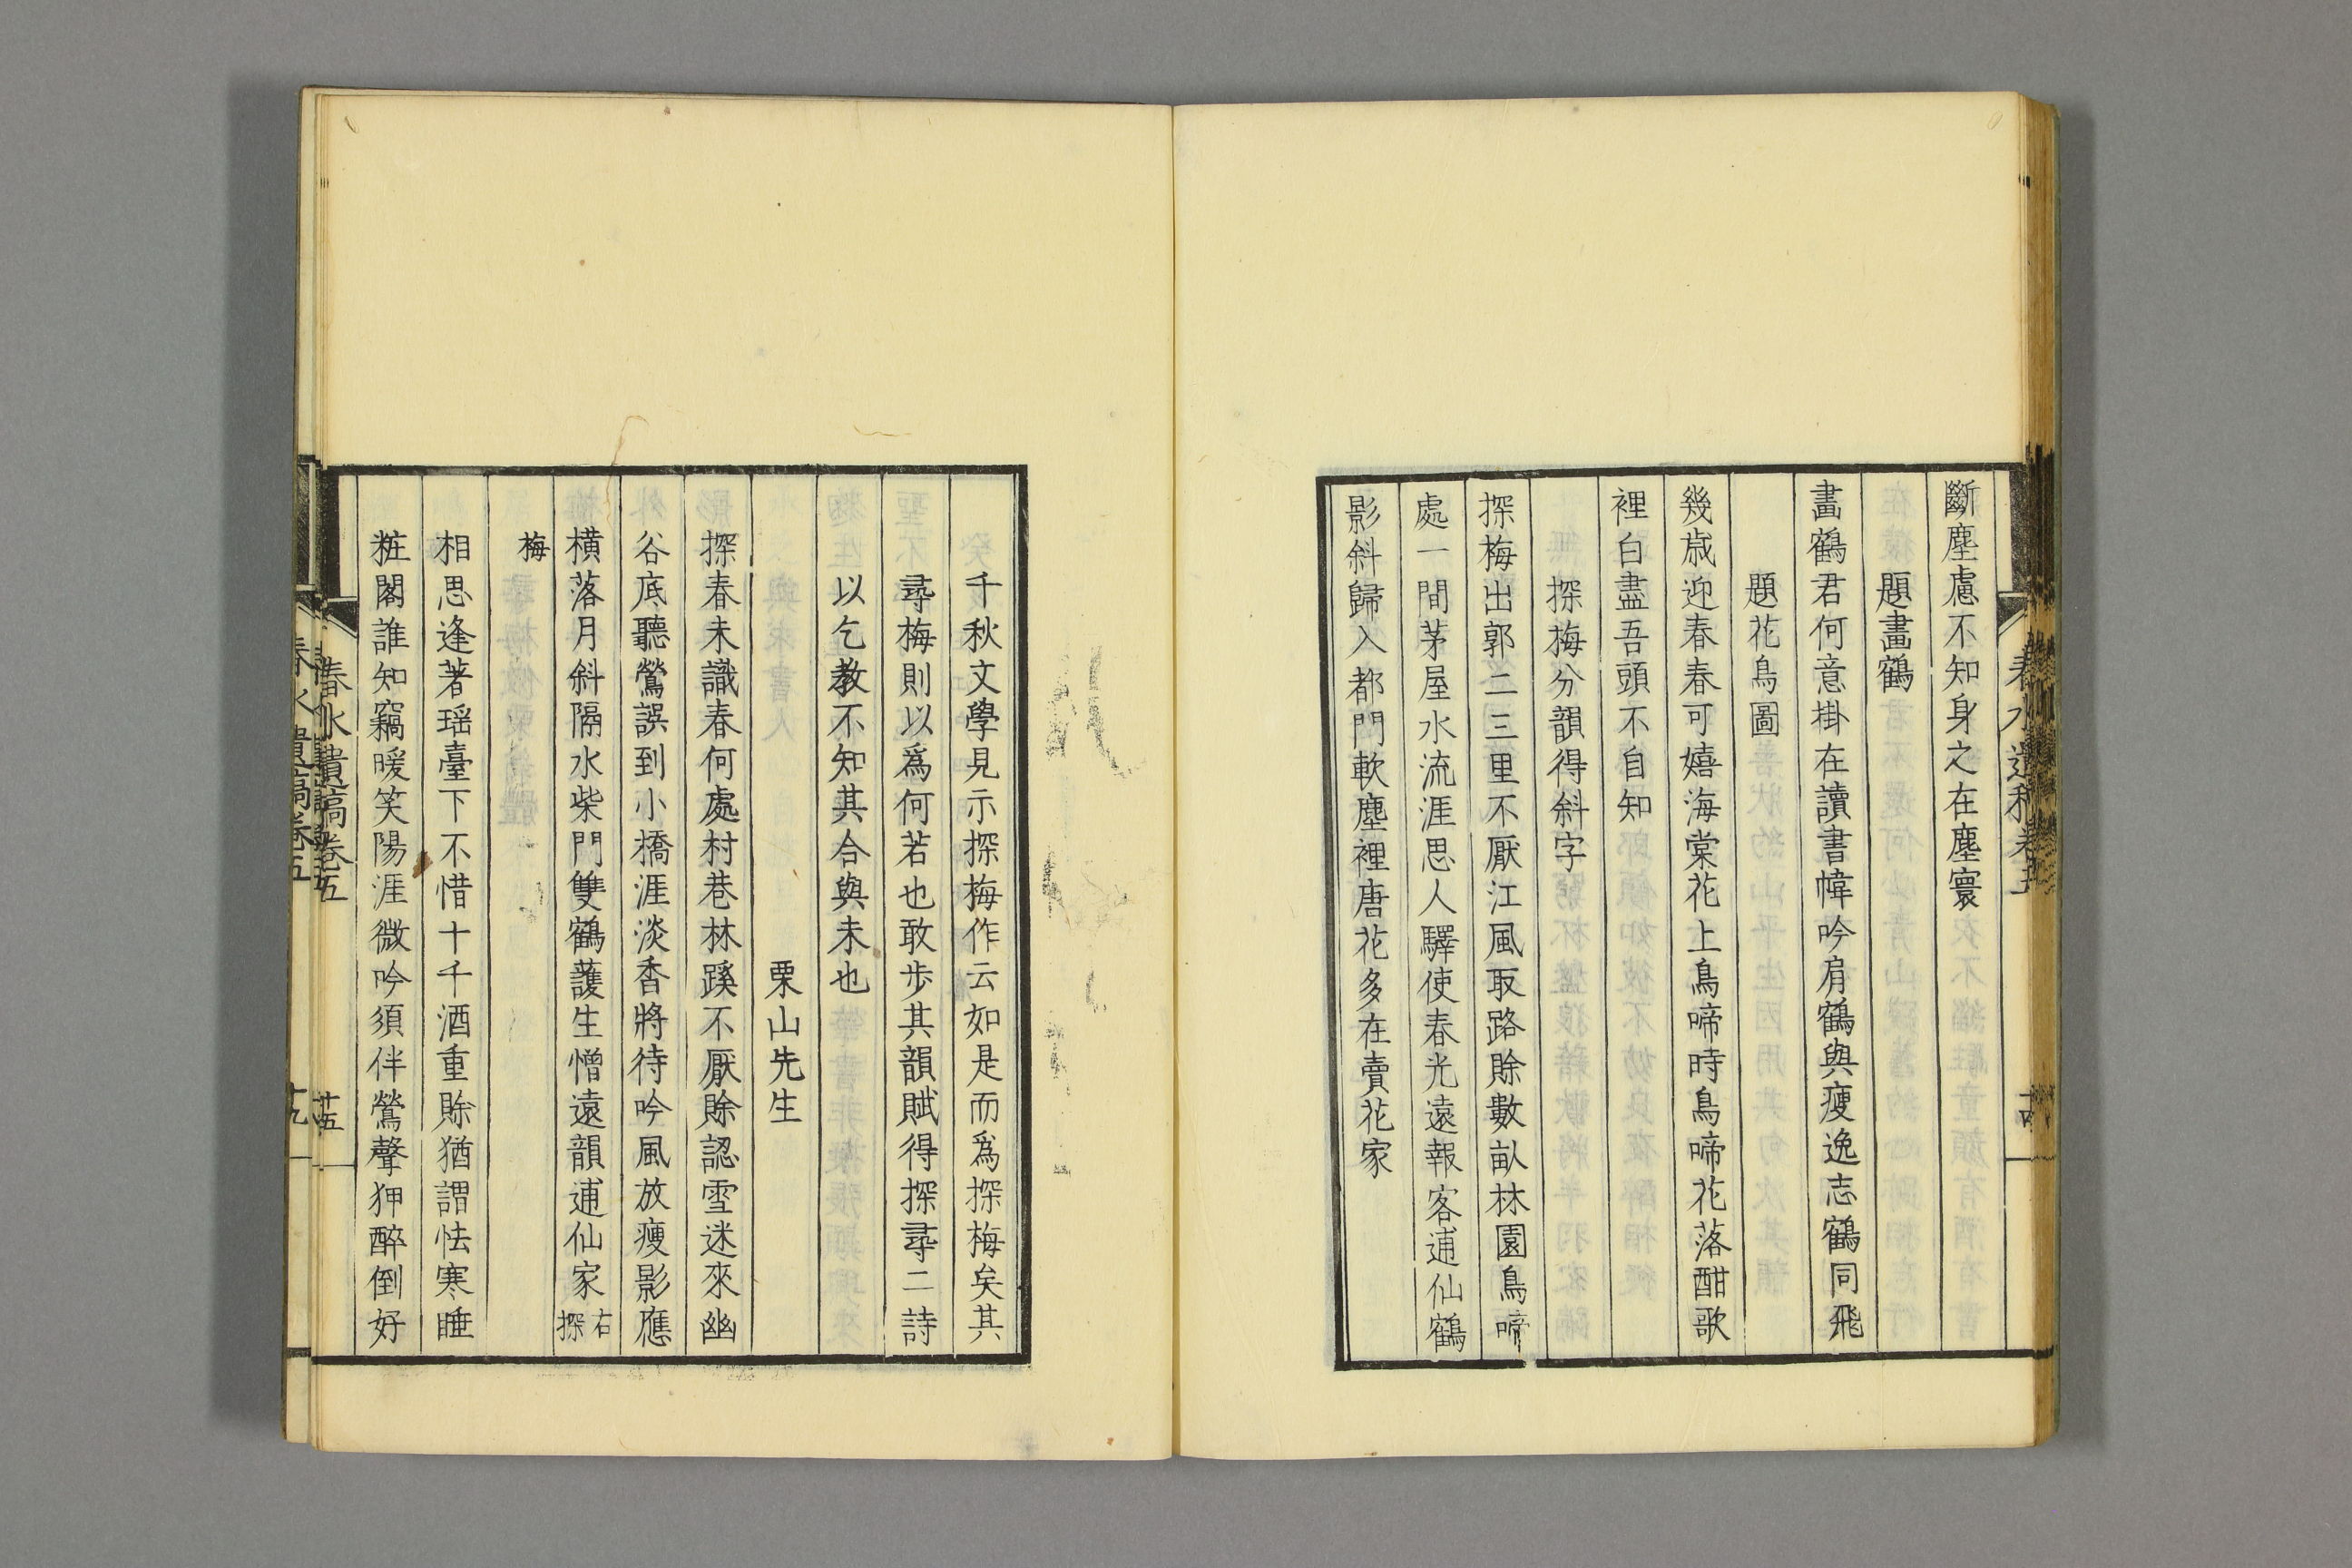 斷塵慮不知身之在塵寰
題畫鶴
畵鶴君何意掛在讀書幃吟肩鶴與瘦逸志鶴同飛
題花鳥圖
幾歳迎春春可嬉海棠花上鳥啼時鳥啼花落酣歌
裡白盡吾頭不自知
探梅分韻得斜字
探梅出郭二三里不厭江風取路賒數畝林園鳥啼
處一間茅屋水流涯思人驛使春光遠報客逋仙鶴
影斜歸入都門軟塵裡唐花多在賣花家
千秋文學見示探梅作云如是而爲探梅矣其
尋梅則以爲何若也敢步其韻賦得探尋二詩
以乞教不知其合與未也
栗山先生
探春未識春何處村巷林蹊不厭賒認雪迷來幽
谷底聽鶯誤到小橋涯淡香將待吟風放瘦影應
橫落月斜隔水柴門雙鶴護生憎遠韻逋仙家右探
梅
相思逢著瑶臺下不惜十千酒重賒猶謂怯寒睡
粧閣誰知竊暖笑陽涯微吟須伴鶯聲狎醉倒好
春水遺稿卷五
廿五
春水遺稿卷五